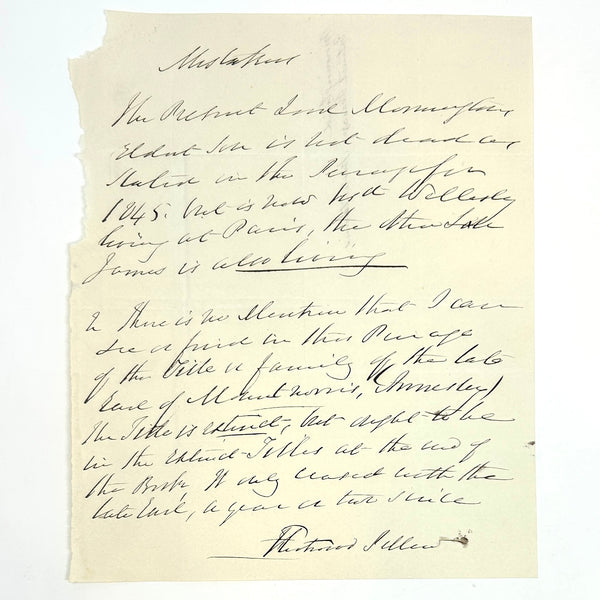 Mistakes
The Present Lord Mornington,
Eldest Son is not dead as
Stated in the Peerage for
1845. but is now Visct Wellesley
living at Paris, the other Son
James is also living
2 There is no Mention that I can
see or find in this Peerage
of the Title or family of the late
Earl of Mountnorris, (Annesley)
the Title is extinct, but ought to be
in the Extinct Titles at the end of
the Book, It only ceased with the
late Earl, a year or two since